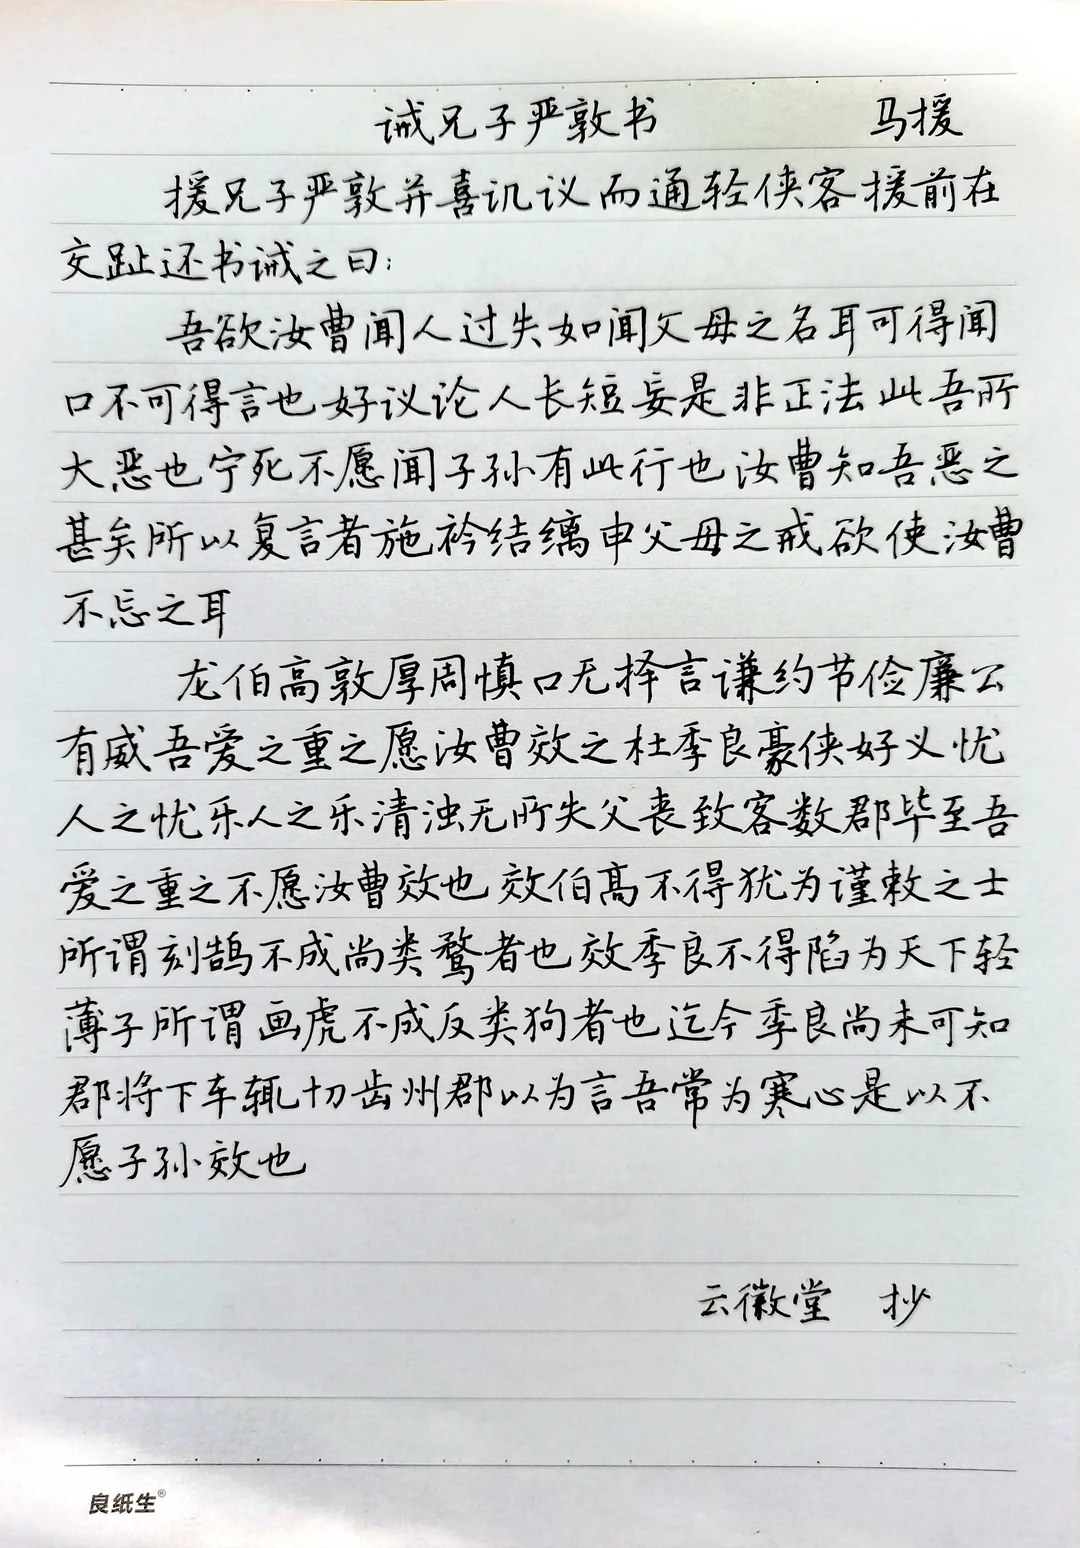 诫兄子严敦书 马援
援兄子严敦并喜讥议而通轻侠客援前在
交趾还书诫之曰:
吾欲汝曹闻人过失如闻父母之名耳可得闻
口不可得言也好议论人长短妄是非正法此吾所
大恶也宁死不愿闻子孙有此行也汝曹知吾恶之
甚矣所以复言者施衿结缡申父母之戒欲使汝曹
不忘之耳
龙伯高敦厚周慎口无择言谦约节俭廉公
有威吾爱之重之愿汝曹效之杜季良豪侠好义忧
人之忧乐人之乐清浊无所失父丧致客数郡毕至吾
爱之重之不愿汝曹效也效伯高不得犹为谨敕之士
所谓刻鹄不成尚类鹜者也效季良不得陷为天下轻
薄子所谓画虎不成反类狗者也迄今季良尚未可知
郡将下车辄切齿州郡以为言吾常为寒心是以不
愿子孙效也
云徽堂 抄
良纸生®